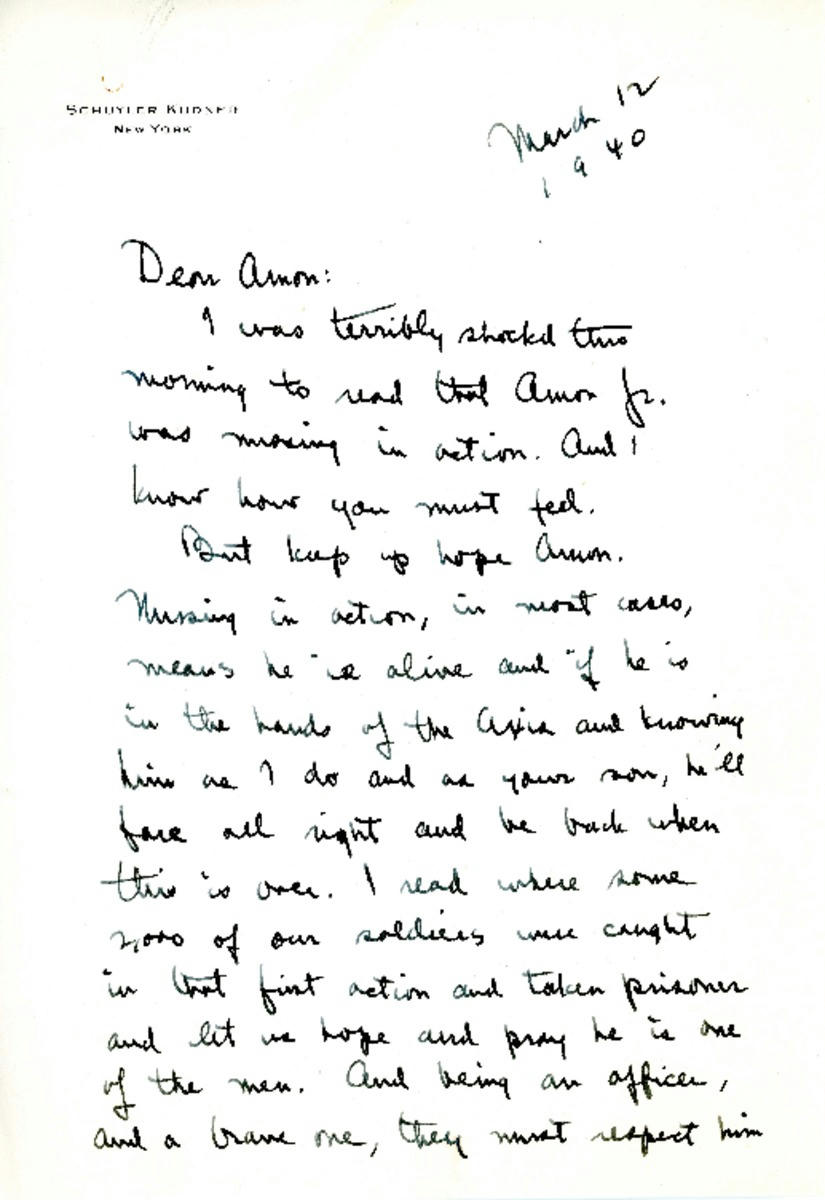 SCHUYLER KUDNER
NEW YORK
March 12
1940
Dear Amon:
I was terribly shocked this
morning to read that Amon Jr.
was missing in action. And I
know how you must feel.
But keep up hope Amon.
Missing in action, in most cases,
means he is alive and if he is
in the hands of the Axis and knowing
him as I do and as your son, he'll
fare all right and be back when
this is over. I read where some
2,000 of our soldiers were caught
in that first action and taken prisoner
and let us hope and pray he is one
of the men. And being an officer,
and a brave one, they must respect him